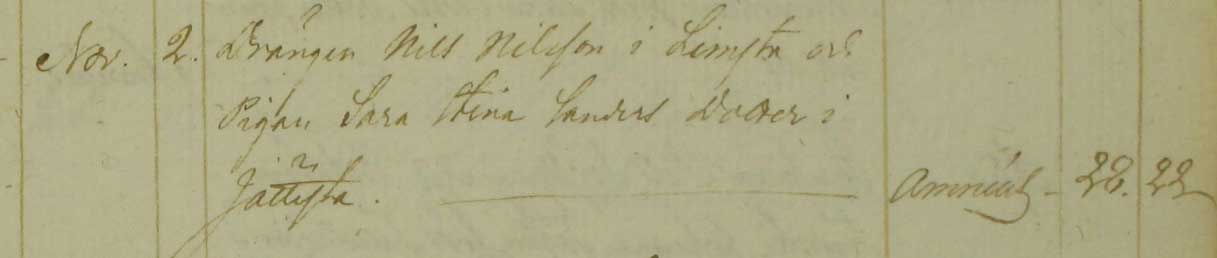 Nov. 2. Drängen Nils Nilsson i Limsta och
Pigan Sara Stina Sanders Dotter i
Jättesta. 28. 22